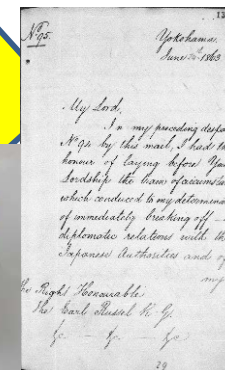 No 95.
Yokohama.
June 24th 1863
My Lord,
In my preceding despa
No 94 by this mail, I had th
honour of laying before You
Lordship the train of circumstan
which conduced to my determina
of immediately breaking off
diplomatic relations with th
Japanese Authorities and of
my
he Right Honourable
The Earl Russel K. G.
&c — &c. — &c
29